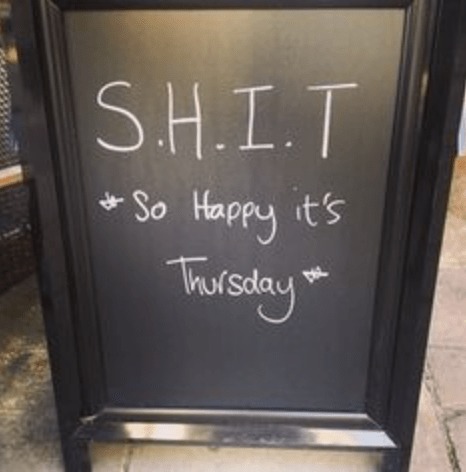 S.H.I.T
*So Happy it's
Thursday*